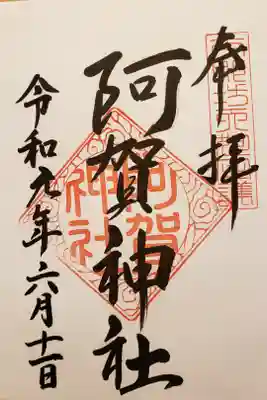 奉拝
阿賀神社
阿賀
神社
令和九年六月十一日